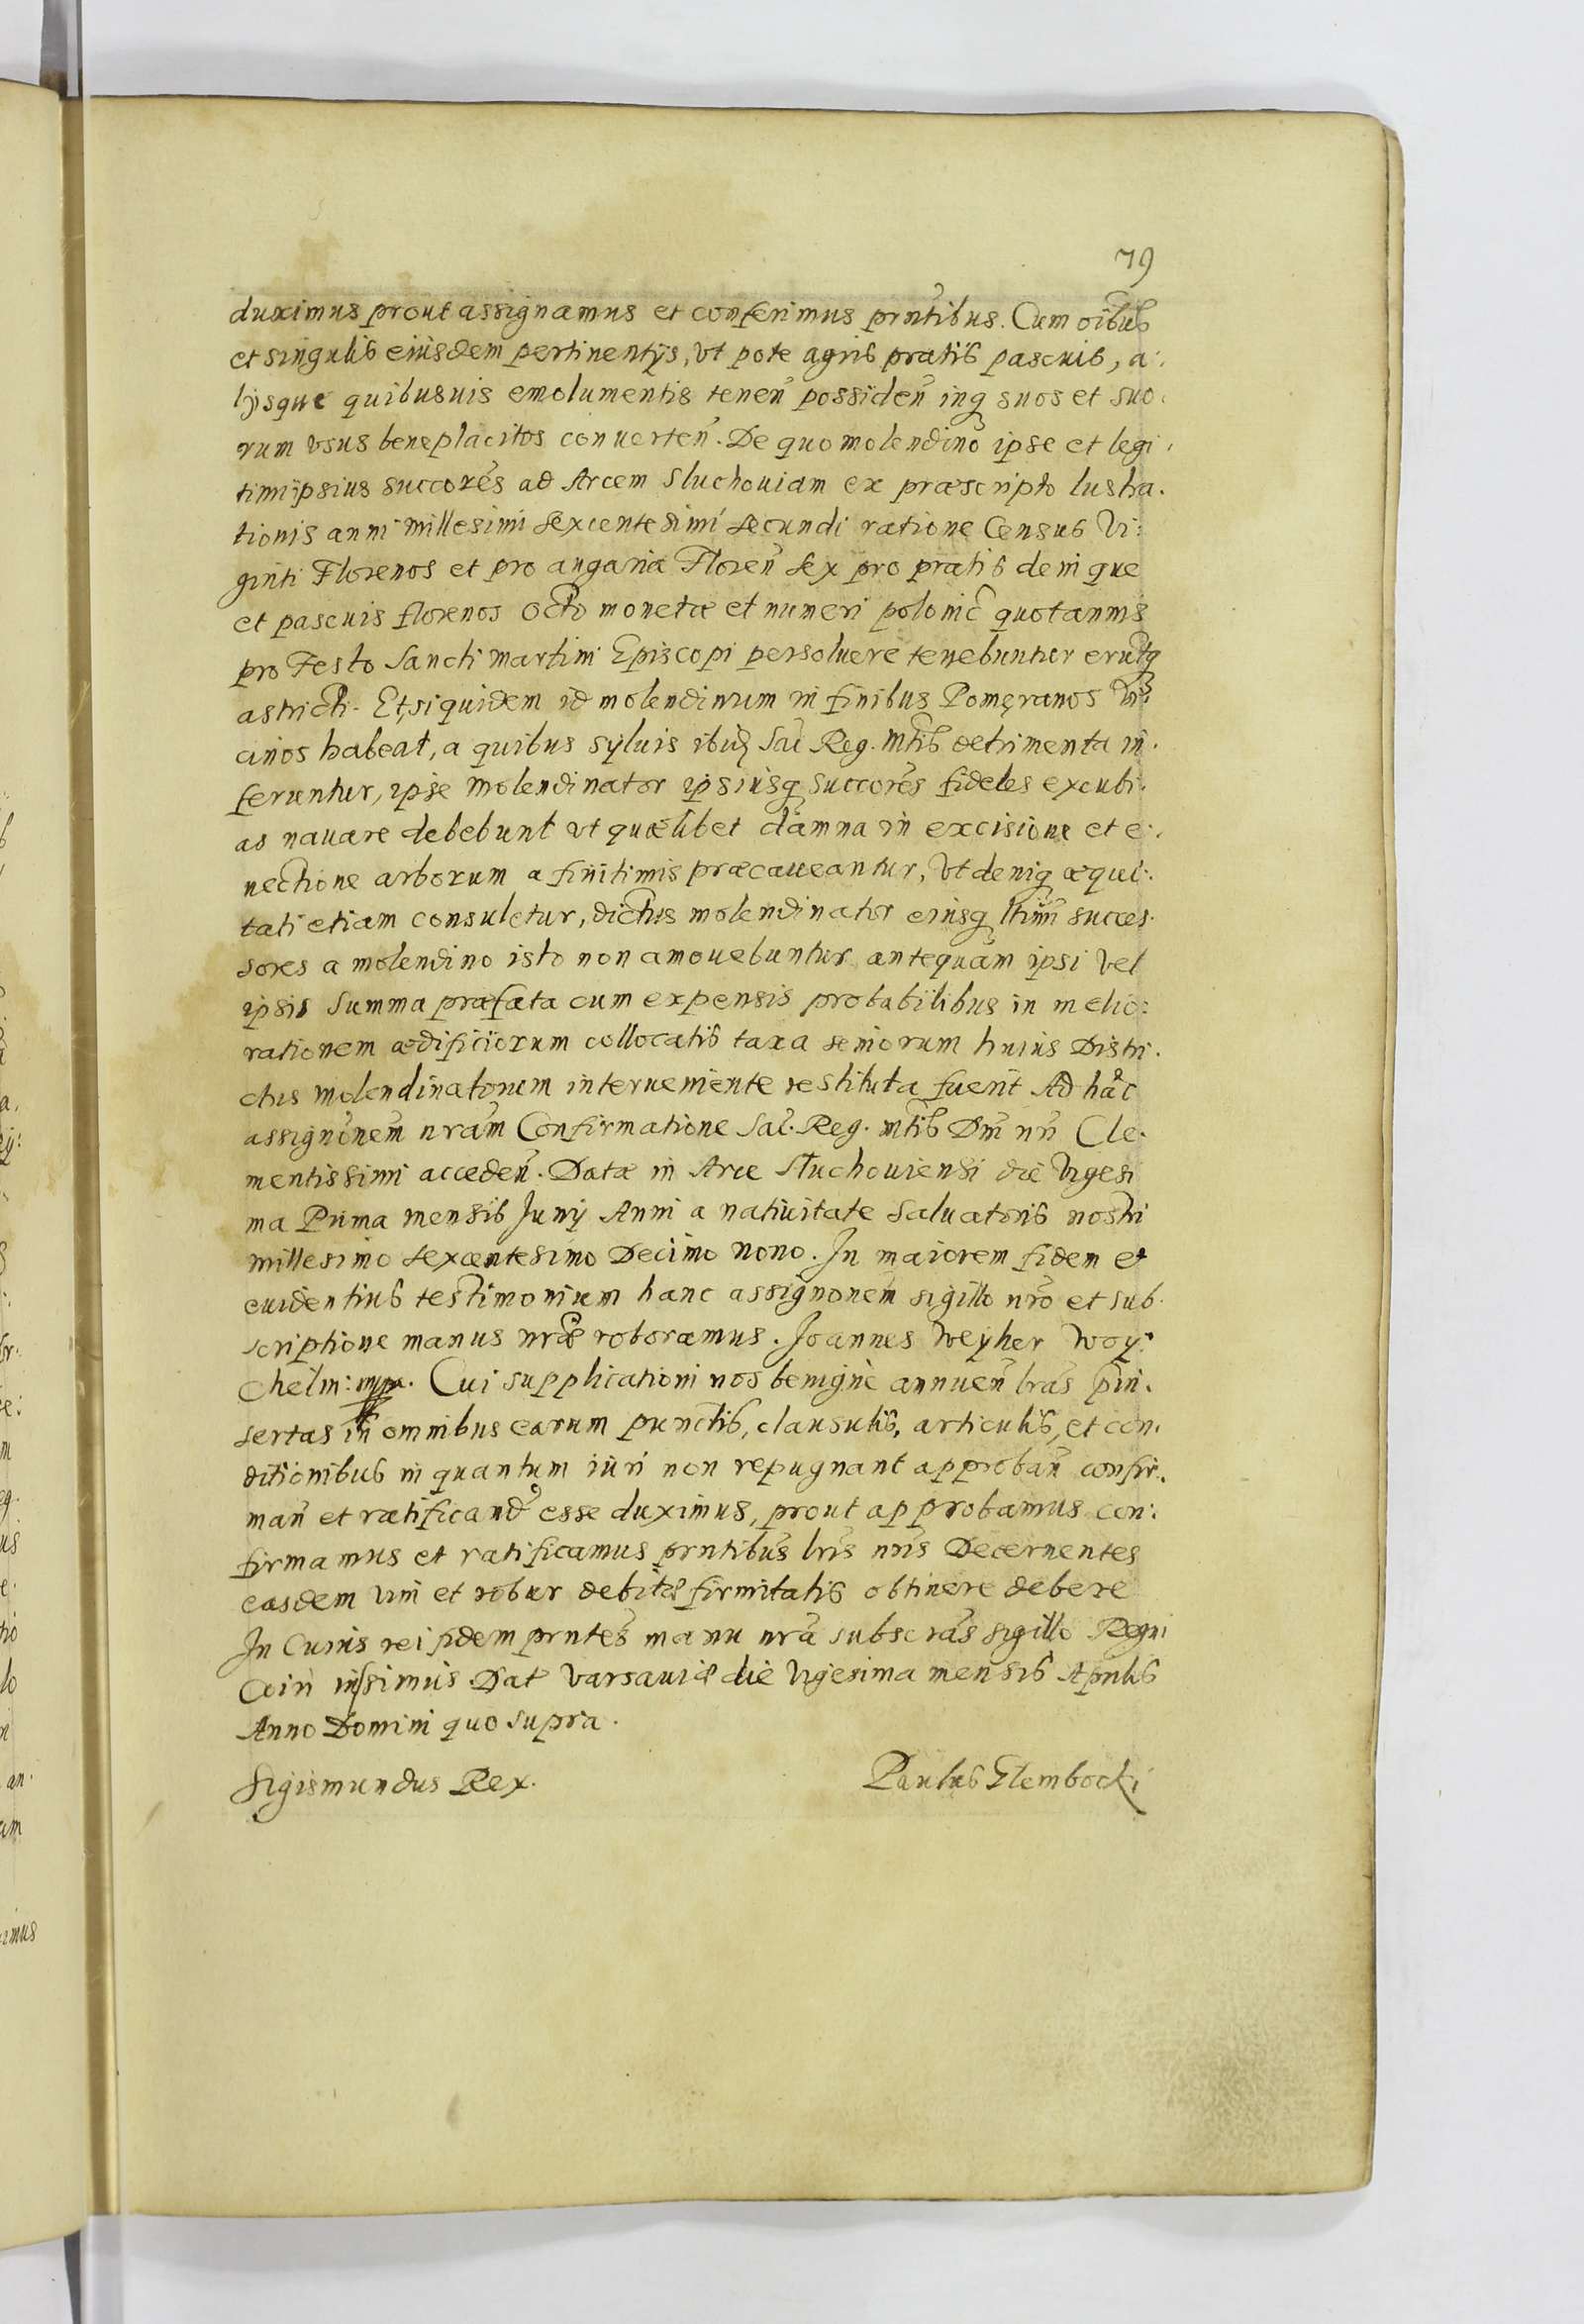 79
duximus prout assignamus et conferimus prntibus. Cum oibus
et singulis eiusdem pertinentijs, vt pote agris pratis pascuis, a:
lijsque quibusuis emolumentis tenen possiden inq suos et suo:
rum vsus beneplacitos conuerten. De quo molendino ipse et legi:
timi ipsius succores ad Arcem Sluchouiam ex præscripto lustra:
tionis anni millesimi sexcentesimi secundi ratione Census Vi:
ginti Florenos et pro angaria Floren sex pro pratis denique
et pascuis florenos octo monetæ et numeri polonic quotannis
pro Festo Sancti Martini Episcopi persoluere tenebuntur eruntq
astricti. Et siquidem id molendinum in finibus Pomeranos vi:
cinos habeat, a quibus syluis ibid Sac Reg. Mtis detrimenta in:
feruntur, ipse molendinator ipsiusq succores fideles excubi:
as nauare debebunt vt quælibet damna in excisione et e:
nectione arborum a finitimis præcaueantur, Vt deniq æqui:
tati etiam consuletur, dictus molendinator eiusq ltimi succes:
sores a molendino isto non amouebuntur antequam ipsi vel
ipsis summa præfata cum expensis probabilibus in melio:
rationem ædificiorum collocatis taxa seniorum huius Distri:
ctus molendinatorum interueniente restituta fuerit Ad hac
assignonem nram Confirmatione Sac. Reg. Mtis Dni nri Cle:
mentissimi acceden. Datæ in Arce Sluchouiensi die Vigesi
ma Prima mensis Junij Anni a natiuitate Saluatoris nostri
millesimo sexcentesimo Decimo nono. In maiorem fidem et
euidentius testimonium hanc assignonem sigillo nro et sub:
scriptione manus nræ roboramus. Joannes Weyher Woy:
Chelm: mppa. Cui supplicationi nos benigne annuen lras pin:
sertas in omnibus earum punctis, clausulis, articulis, et con:
ditionibus in quantum iuri non repugnant approban confir:
man et ratificand esse duximus, prout approbamus con:
firmamus et ratificamus prntibus lris nris Decernentes
easdem vim et robur debitæ firmitatis obtinere debere
In Cuius rei fidem prntes manu nra subscras sigillo Regni
Coiri iussimus. Dat Varsauiæ die Vigesima mensis Aprilis
Anno Domini quo supra.
Sigismundus Rex. Paulus Glembocki